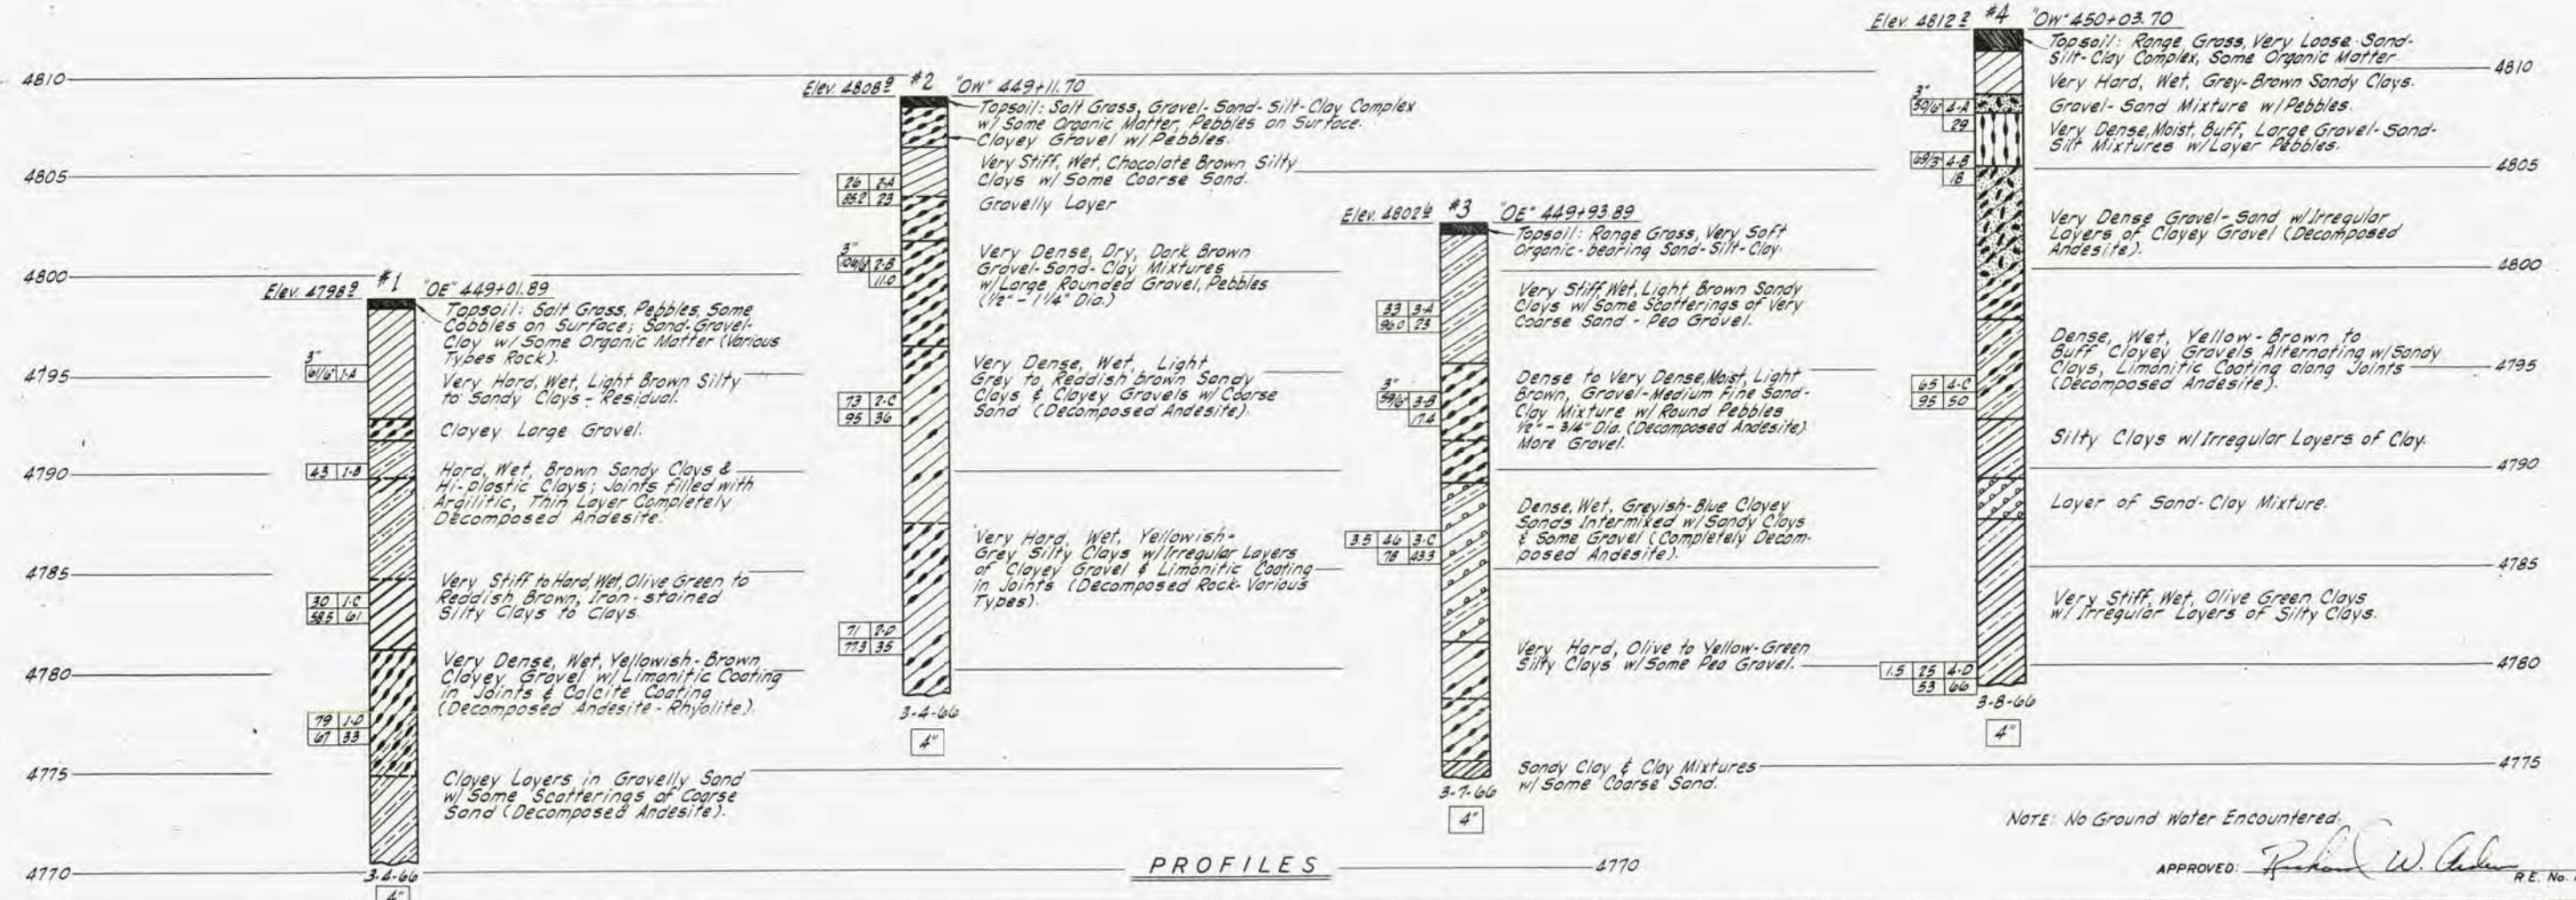 4810
4805
4800
4795
4790
4785
4780
4775
4770
Elev. 4798.9 #1 "OE" 449+01.89
Topsoil: Salt Grass, Pebbles, Some
Cobbles on Surface; Sand-Gravel-
Clay w/ Some Organic Matter (Various
Types Rock).
Very Hard, Wet, Light Brown Silty
to Sandy Clays - Residual.
Clayey Large Gravel.
Hard, Wet, Brown Sandy Clays &
Hi-plastic Clays; Joints filled with
Argilitic, Thin Layer Completely
Decomposed Andesite.
Very Stiff to Hard, Wet, Olive Green to
Reddish Brown, Iron-stained
Silty Clays to Clays.
Very Dense, Wet, Yellowish-Brown
Clayey Gravel w/ Limonitic Coating
in Joints & Calcite Coating
(Decomposed Andesite - Rhyolite).
Clayey Layers in Gravelly Sand
w/ Some Scatterings of Coarse
Sand (Decomposed Andesite).
3"
61/6" 1-A
43 1-B
30 1-C
58.5 61
79 1-D
67 33
3-4-66
4"
Elev. 4808.9 #2 "OW" 449+11.70
Topsoil: Salt Grass, Gravel-Sand-Silt-Clay Complex
w/ Some Organic Matter, Pebbles on Surface.
Clayey Gravel w/ Pebbles.
Very Stiff, Wet, Chocolate Brown Silty
Clays w/ Some Coarse Sand.
Gravelly Layer
Very Dense, Dry, Dark Brown
Gravel-Sand-Clay Mixtures
w/ Large Rounded Gravel, Pebbles
(1/2" - 1 1/4" Dia.)
Very Dense, Wet, Light
Grey to Reddish brown Sandy
Clays & Clayey Gravels w/ Coarse
Sand (Decomposed Andesite).
Very Hard, Wet, Yellowish-
Grey Silty Clays w/ Irregular Layers
of Clayey Gravel & Limonitic Coating
in Joints (Decomposed Rock-Various
Types).
26 2-A
85.2 23
3"
2-B
11.0
73 2-C
95 36
71 2-D
77.3 35
3-4-66
4"
Elev. 4802.6 #3 "OE" 449+93.89
Topsoil: Range Grass, Very Soft
Organic-bearing Sand-Silt-Clay.
Very Stiff Wet, Light Brown Sandy
Clays w/ Some Scatterings of Very
Coarse Sand - Pea Gravel.
Dense to Very Dense, Moist, Light
Brown, Gravel-Medium Fine Sand-
Clay Mixture w/ Round Pebbles
1/2" - 3/4" Dia. (Decomposed Andesite)
More Gravel.
Dense, Wet, Greyish-Blue Clayey
Sands Intermixed w/ Sandy Clays
& Some Gravel (Completely Decom-
posed Andesite).
Very Hard, Olive to Yellow-Green
Silty Clays w/ Some Pea Gravel.
Sandy Clay & Clay Mixtures
w/ Some Coarse Sand.
33 3-A
96.0 23
3"
59/6" 3-B
17.4
3.5 46 3-C
78 43.3
3-7-66
4"
Elev. 4812.2 #4 "OW" 450+03.70
Topsoil: Range Grass, Very Loose Sand-
Silt-Clay Complex, Some Organic Matter
Very Hard, Wet, Grey-Brown Sandy Clays.
Gravel-Sand Mixture w/ Pebbles.
Very Dense, Moist, Buff, Large Gravel-Sand-
Silt Mixtures w/ Layer Pebbles.
Very Dense Gravel-Sand w/ Irregular
Layers of Clayey Gravel (Decomposed
Andesite).
Dense, Wet, Yellow-Brown to
Buff Clayey Gravels Alternating w/ Sandy
Clays, Limonitic Coating along Joints
(Decomposed Andesite).
Silty Clays w/ Irregular Layers of Clay.
Layer of Sand-Clay Mixture.
Very Stiff, Wet, Olive Green Clays
w/ Irregular Layers of Silty Clays.
3"
50/6" 4-A
29
69/3" 4-B
18
65 4-C
95 50
1.5 25 4-D
53 66
3-8-66
4"
4810
4805
4800
4795
4790
4785
4780
4775
NOTE: No Ground Water Encountered.
PROFILES
4770
APPROVED: Richard W.
R.E. No.